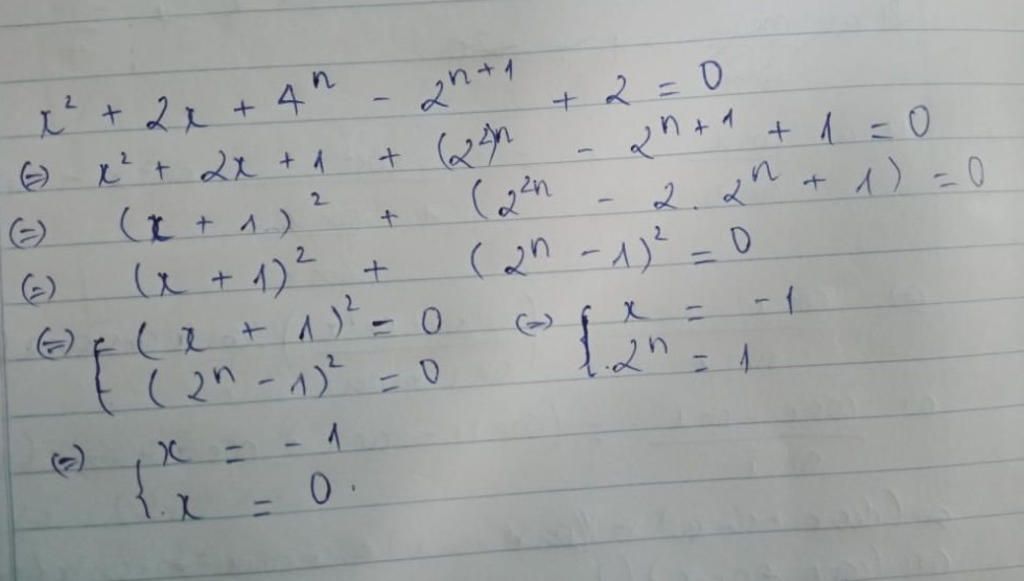 x² + 2x + 4ⁿ - 2ⁿ⁺¹ + 2 = 0
(=) x² + 2x + 1 + (2²)ⁿ - 2ⁿ⁺¹ + 1 = 0
(=) (x + 1)² + (2²ⁿ - 2. 2ⁿ + 1) = 0
(=) (x + 1)² + (2ⁿ - 1)² = 0
(=) { (x + 1)² = 0 (=) { x = -1
(2ⁿ - 1)² = 0 2ⁿ = 1
(=) { x = -1
x = 0.